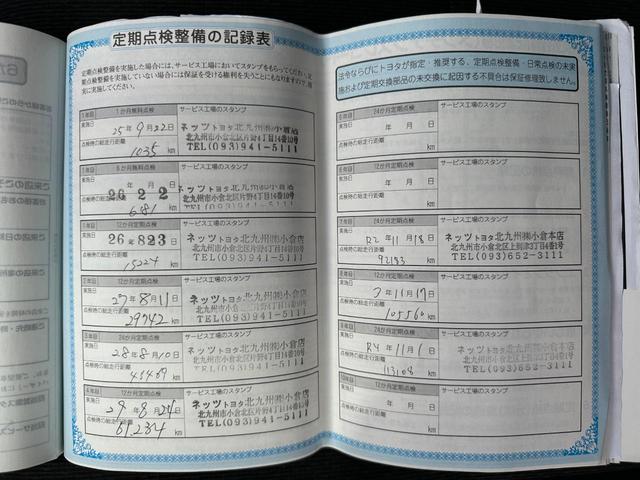 定期点検整備の記録表
定期点検整備を実施した場合には、サービス工場においてスタンプをもらってください。定
期点検整備を実施していない場合には保証を受ける権利を失うことにもなりますので、確
実に実施してください。
1年目 1か月無料点検 サービス工場のスタンプ
実施日 25年9月22日
点検時の総走行距離
1035 km
ネッツトヨタ北九州㈱小倉店
北九州市小倉北区片野4丁目14番10号
TEL(093)941-5111
6か月無料点検 サービス工場のスタンプ
実施日 年 月 日
26 2 2
点検時の総走行距離
km
ネッツトヨタ北九州㈱小倉店
北九州市小倉北区片野4丁目14番10号
TEL(093)941-5111
12か月定期点検 サービス工場のスタンプ
実施日
26年 823日
点検時の総走行距離
15024 km
ネッツトヨタ北九州㈱小倉店
北九州市小倉北区片野4丁目14番10号
TEL(093)941-5111
2年目 12か月定期点検 サービス工場のスタンプ
実施日
27年8月11日
点検時の総走行距離
29742 km
ネッツトヨタ北九州㈱小倉店
北九州市小倉北区片野4丁目14番10号
TEL(093)941-5111
3年目 24か月定期点検 サービス工場のスタンプ
実施日
28年8月10日
点検時の総走行距離
km
ネッツトヨタ北九州㈱小倉店
北九州市小倉北区片野4丁目14番10号
TEL(093)941-5111
4年目 12か月定期点検 サービス工場のスタンプ
実施日
29年8月24日
点検時の総走行距離
61,234 km
ネッツトヨタ北九州㈱小倉店
北九州市小倉北区片野4丁目14番10号
TEL(093)941-5111
法令ならびにトヨタが指定・推奨する、定期点検整備・日常点検の未実
施および定期交換部品の未交換に起因する不具合は保証修理致しません。
24か月定期点検 サービス工場のスタンプ
実施日 年 月 日
点検時の総走行距離
km
12か月定期点検 サービス工場のスタンプ
実施日 年 月 日
点検時の総走行距離
km
7年目 24か月定期点検 サービス工場のスタンプ
実施日
R2年11月18日
点検時の総走行距離
km
ネッツトヨタ北九州㈱小倉本店
TEL(093)652-3111
12か月定期点検 サービス工場のスタンプ
実施日
3年11月17日
点検時の総走行距離
km
24か月定期点検 サービス工場のスタンプ
実施日
R4年11月6日
点検時の総走行距離
113108 km
TEL(093)652-3111
12か月定期点検 サービス工場のスタンプ
実施日 年 月 日
点検時の総走行距離
km